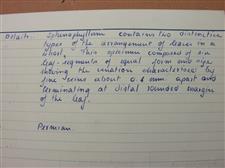 Details:- Sphenophyllum contains two distinctive
types of the arrangement of leaves in a
whorl. This specimen composed of six
leaf-segments of equal form and size
showing the venation characterised by
fine veins about 0. mm apart and
terminating at distal rounded margin
of the leaf.
Permian.